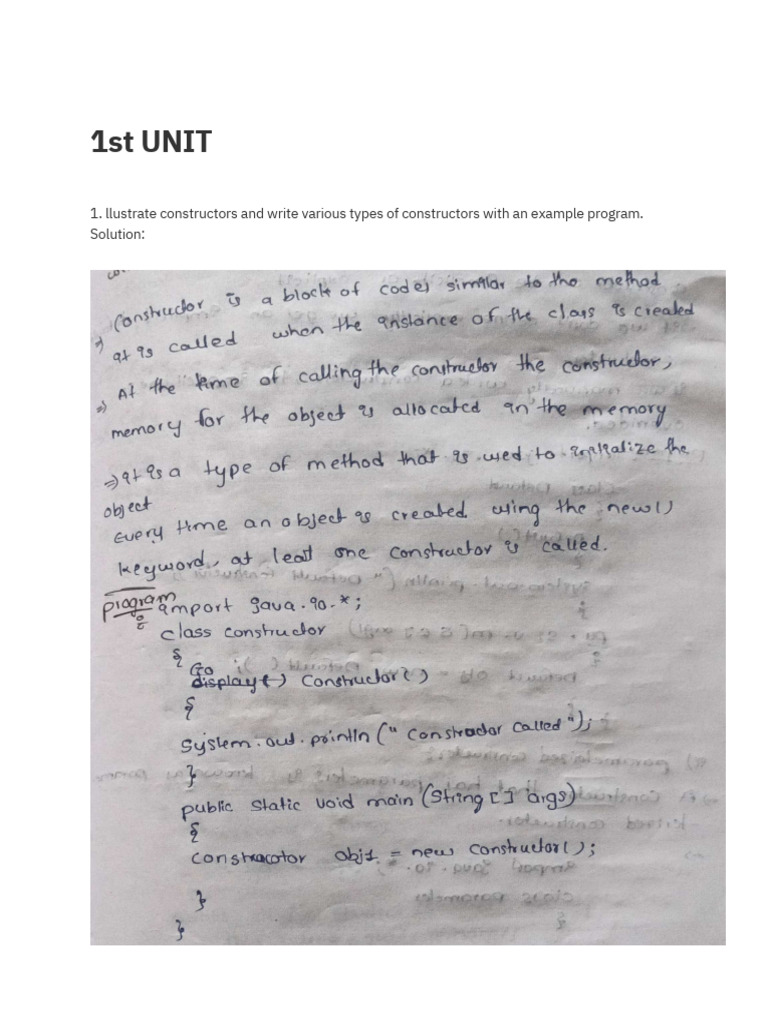 1st UNIT
1. llustrate constructors and write various types of constructors with an example program.
Solution:
Constructor is a block of codes similar to the method
It is called when the instance of the class is created
⇒ At the time of calling the constructor the constructor,
memory for the object is allocated in the memory
⇒ It is a type of method that is used to initialize the
object
Every time an object is created using the new()
keyword, at least one constructor is called.
program: import java.io.*;
class constructor
{
display() Constructor()
{
System.out.println("Constructor called");
}
public static void main (String [] args)
{
Constructor obj1 = new constructor();
}
}